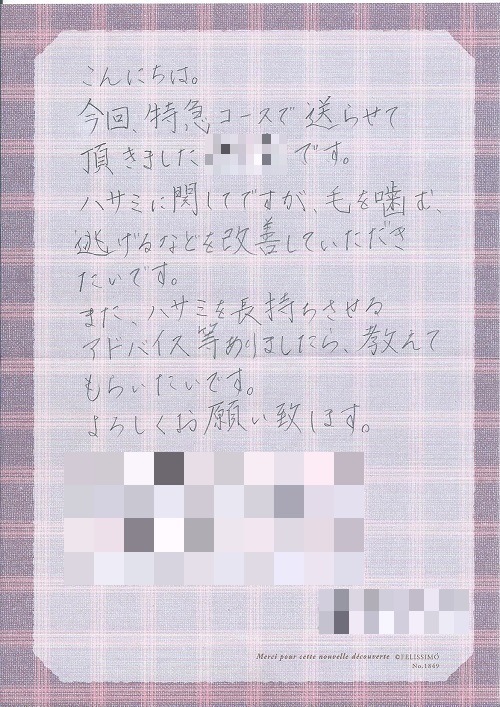 こんにちは。
今回、特急コースで送らせて
頂きました です。
ハサミに関してですが、毛を噛む、
逃げるなどを改善していただき
たいです。
また、ハサミを長持ちさせる
アドバイス等ありましたら、教えて
もらいたいです。
よろしくお願い致します。
Merci pour cette nouvelle découverte ©FELISSIMO
No.1869